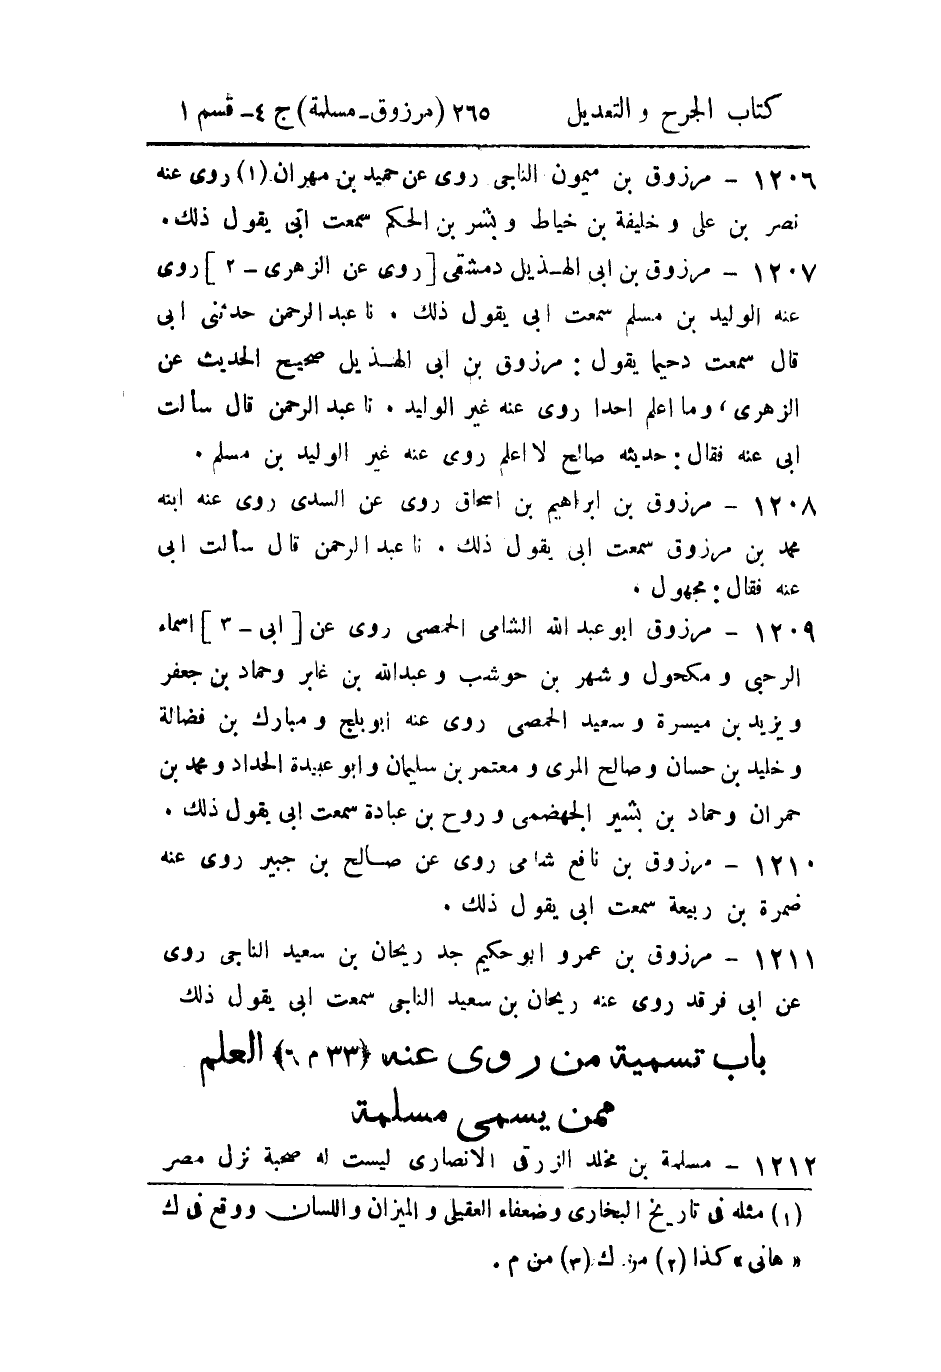 كتاب الجرح و التعديل ٢٦٥ (مرزوق ـ مسلمة) ج ٤ ـ قسم ١
١٢٠٦ – مرزوق بن ميمون الناجى روى عن حميد بن مهران (١) روى عنه
نصر بن على و خليفة بن خياط و بشر بن الحكم سمعت ابى يقول ذلك.
١٢٠٧ – مرزوق بن ابى الهـذيل دمشقى [روى عن الزهرى – ٢] روى
عنه الوليد بن مسلم سمعت ابى يقول ذلك . نا عبد الرحمن حدثنى ابى
قال سمعت دحيما يقول : مرزوق بن ابى الهـذيل صحيح الحديث عن
الزهرى ، وما اعلم احدا روى عنه غير الوليد . نا عبد الرحمن قال سألت
ابى عنه فقال : حديثه صالح لا اعلم روى عنه غير الوليد بن مسلم .
١٢٠٨ – مرزوق بن ابراهيم بن اسحاق روى عن السدى روى عنه ابنه
محمد بن مرزوق سمعت ابى يقول ذلك . نا عبد الرحمن قال سألت ابى
عنه فقال : مجهول .
١٢٠٩ – مرزوق ابو عبد الله الشامى الحمصى روى عن [ابى – ٣] اسماء
الرحبى و مكحول و شهر بن حوشب و عبدالله بن غابر وحماد بن جعفر
و يزيد بن ميسرة و سعيد الحمصى روى عنه ابو بلج و مبارك بن فضالة
و خليد بن حسان و صالح المرى و معتمر بن سليمان و ابو عبيدة الحداد و محمد بن
حمران وحماد بن بشير الجهضمى و روح بن عبادة سمعت ابى يقول ذلك .
١٢١٠ – مرزوق بن نافع شامى روى عن صـالح بن جبير روى عنه
ضمرة بن ربيعة سمعت ابى يقول ذلك .
١٢١١ – مرزوق بن عمرو ابو حكيم جد ريحان بن سعيد الناجى روى
عن ابى فرقد روى عنه ريحان بن سعيد الناجى سمعت ابى يقول ذلك
باب تسمية من روى عنه (٣٣ م ٦) العلم
ممن يسمى مسلمة
١٢١٢ – مسلمة بن مخلد الزرقى الانصارى ليست له صحبة نزل مصر
(١) مثله فى تاريخ البخارى وضعفاء العقيلى و الميزان و اللسان ووقع فى ك
« هانى » كذا (٢) من ك (٣) من م .